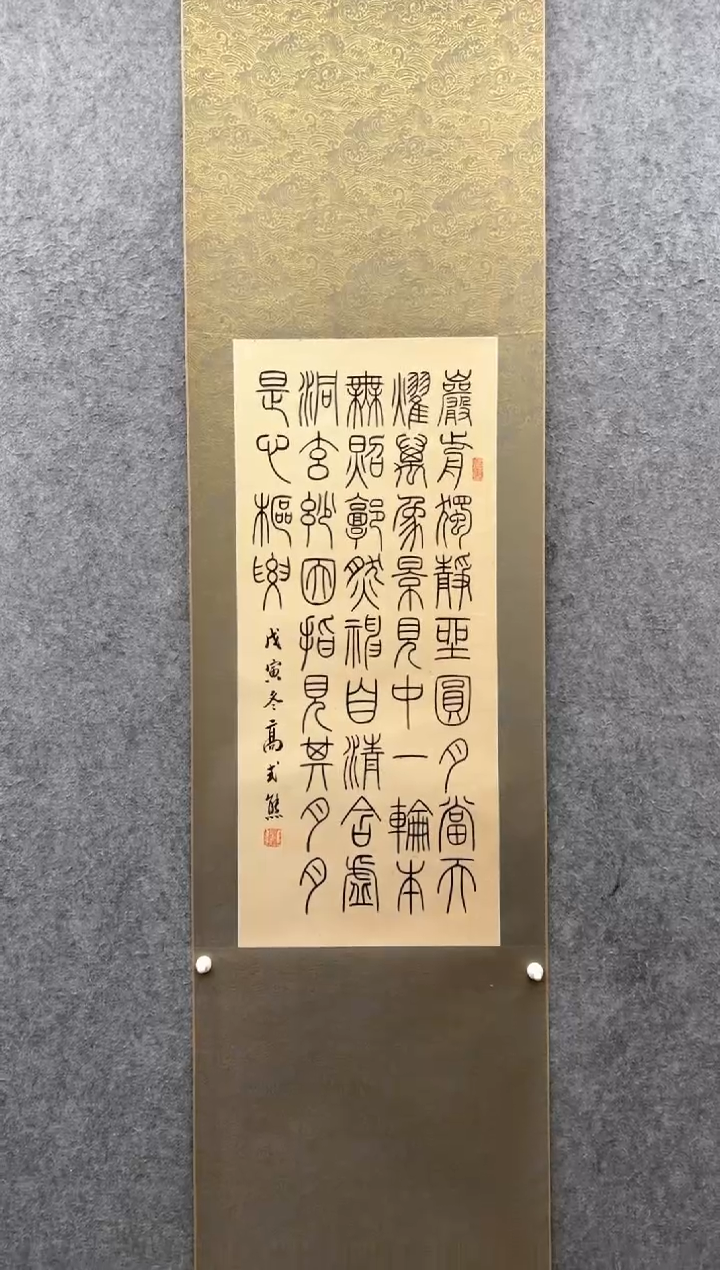 巖前獨靜坐圓月當天
燿萬象景見中一輪本
無照廓然神自清含虛
洞玄妙因指見其月月
是心樞要
戊寅冬高式熊